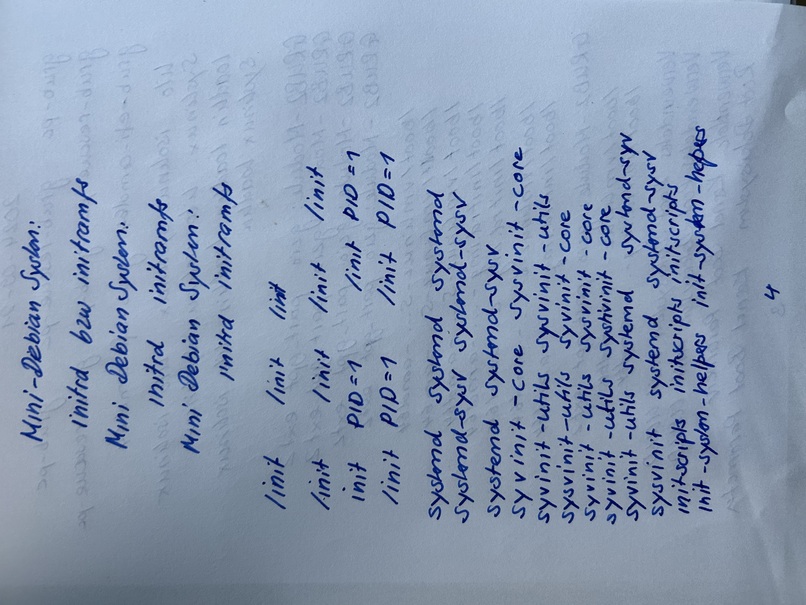 Mini-Debian System:
initrd bzw initramfs
Mini Debian System:
initrd initramfs
Mini Debian System:
initrd initramfs
/init /init /init
/init /init /init /init
init PID=1 /init PID=1
/init PID=1 /init PID=1
systemd systemd systemd
systemd-sysv systemd-sysv
systemd systemd-sysv
syvinit-core sysvinit-core
syvinit-utils sysvinit-utils
sysvinit-utils syvinit-core
syvinit-utils sysvinit-core
syvinit-utils systivinit-core
syvinit-utils systemd systemd-syv
sysvinit systemd systemd-sysv
initscripts initscripts initscripts
init-system-helpers init-system-hepers
4